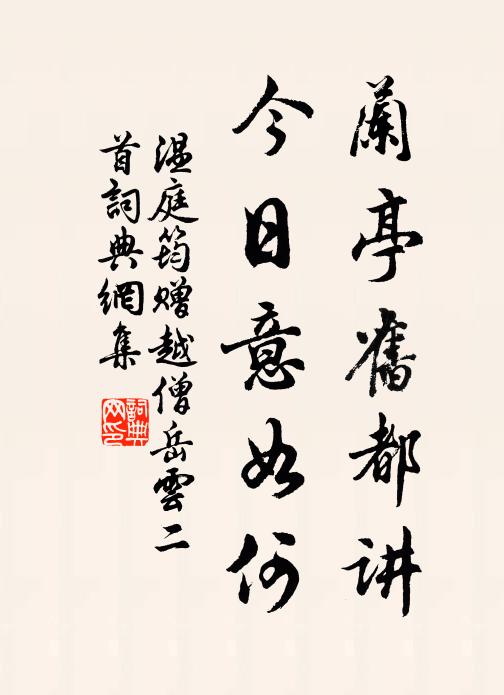 蘭亭舊都讲
今日意如何
温庭筠赠越僧岳雲二
首詞典網集
詞典
网印